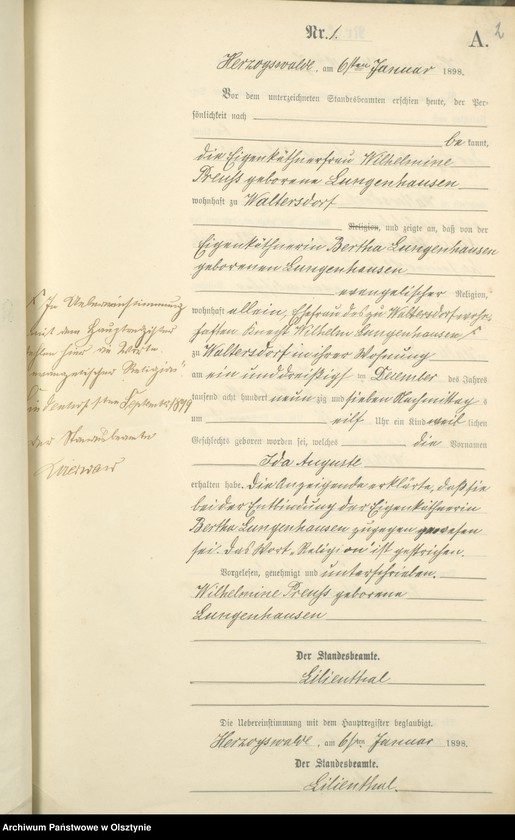 Nr. 1.
A.
2
Herzogswalde, am 6ten Januar 1898.
Vor dem unterzeichneten Standesbeamten erschien heute, der Per-
sönlichkeit nach
bekannt,
die Eigenkäthnerfrau Wilhelmine
Preuß geborene Lungenhausen
wohnhaft zu Waltersdorf
Religion, und zeigte an, daß von der
Eigenkäthnerin Bertha Lungenhausen
geborenen Lungenhausen
evangelischer Religion,
wohnhaft allein, Ehefrau des zu Waltersdorf wohn-
haften Knecht Wilhelm Lungenhausen
zu Waltersdorf in ihrer Wohnung
am ein und dreißigsten December des Jahres
tausend acht hundert neun zig und sieben Nachmittags
um eilf Uhr ein Kind weiblichen
Geschlechts geboren worden sei, welches die Vornamen
Ida Auguste
erhalten habe. Die Anzeigende erklärte, daß sie
bei der Entbindung der Eigenkäthnerin
Bertha Lungenhausen zugegen gewesen
sei. Das Wort „Religion" ist gestrichen.
Vorgelesen, genehmigt und unterschrieben.
Wilhelmine Preuß geborene
Lungenhausen
Der Standesbeamte.
Lilienthal
Die Uebereinstimmung mit dem Hauptregister beglaubigt.
Herzogswalde, am 6ten Januar 1898.
Der Standesbeamte.
Lilienthal.
In Uebereinstimmung
mit dem Hauptregister
fehlen hier die Worte
„evangelischer Religion"
September 1899
Der Standesbeamte
Archiwum Państwowe w Olsztynie